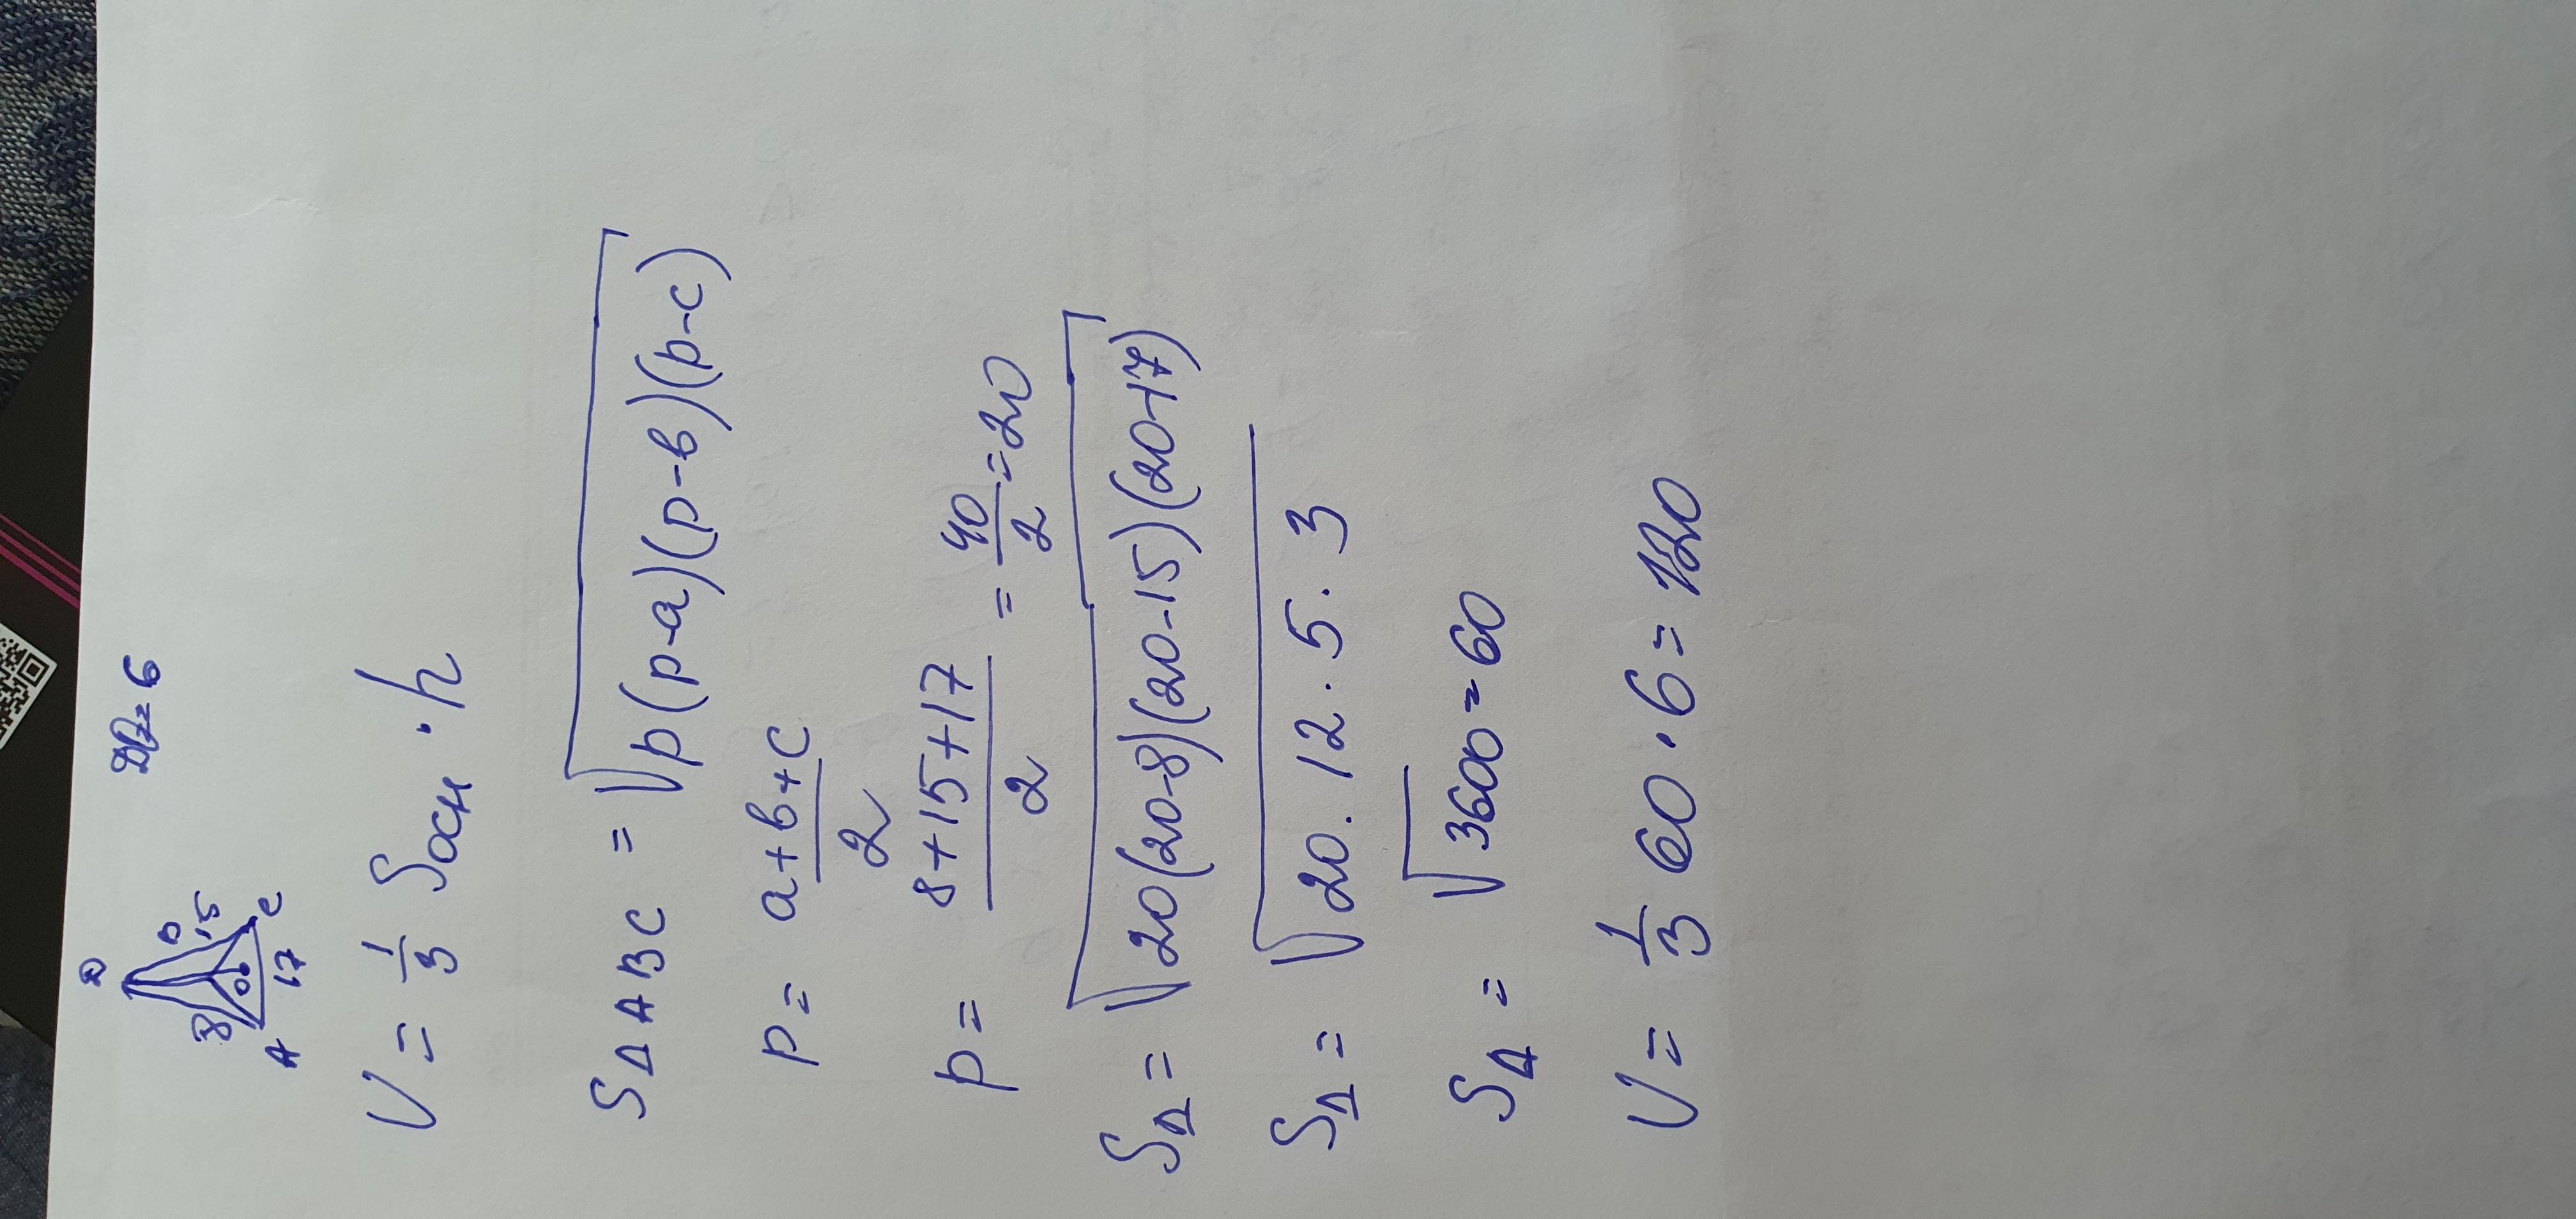 D
B 8 15
A 17 C
= 6
V = 1/3 Sосн · h
S△ABC = √p(p-a)(p-в)(p-c)
p = a+в+c/2
p = 8+15+17/2 = 40/2 = 20
S△ = √20(20-8)(20-15)(20-17)
S△ = √20 · 12 · 5 · 3
S△ = √3600 = 60
V = 1/3 60 · 6 = 120